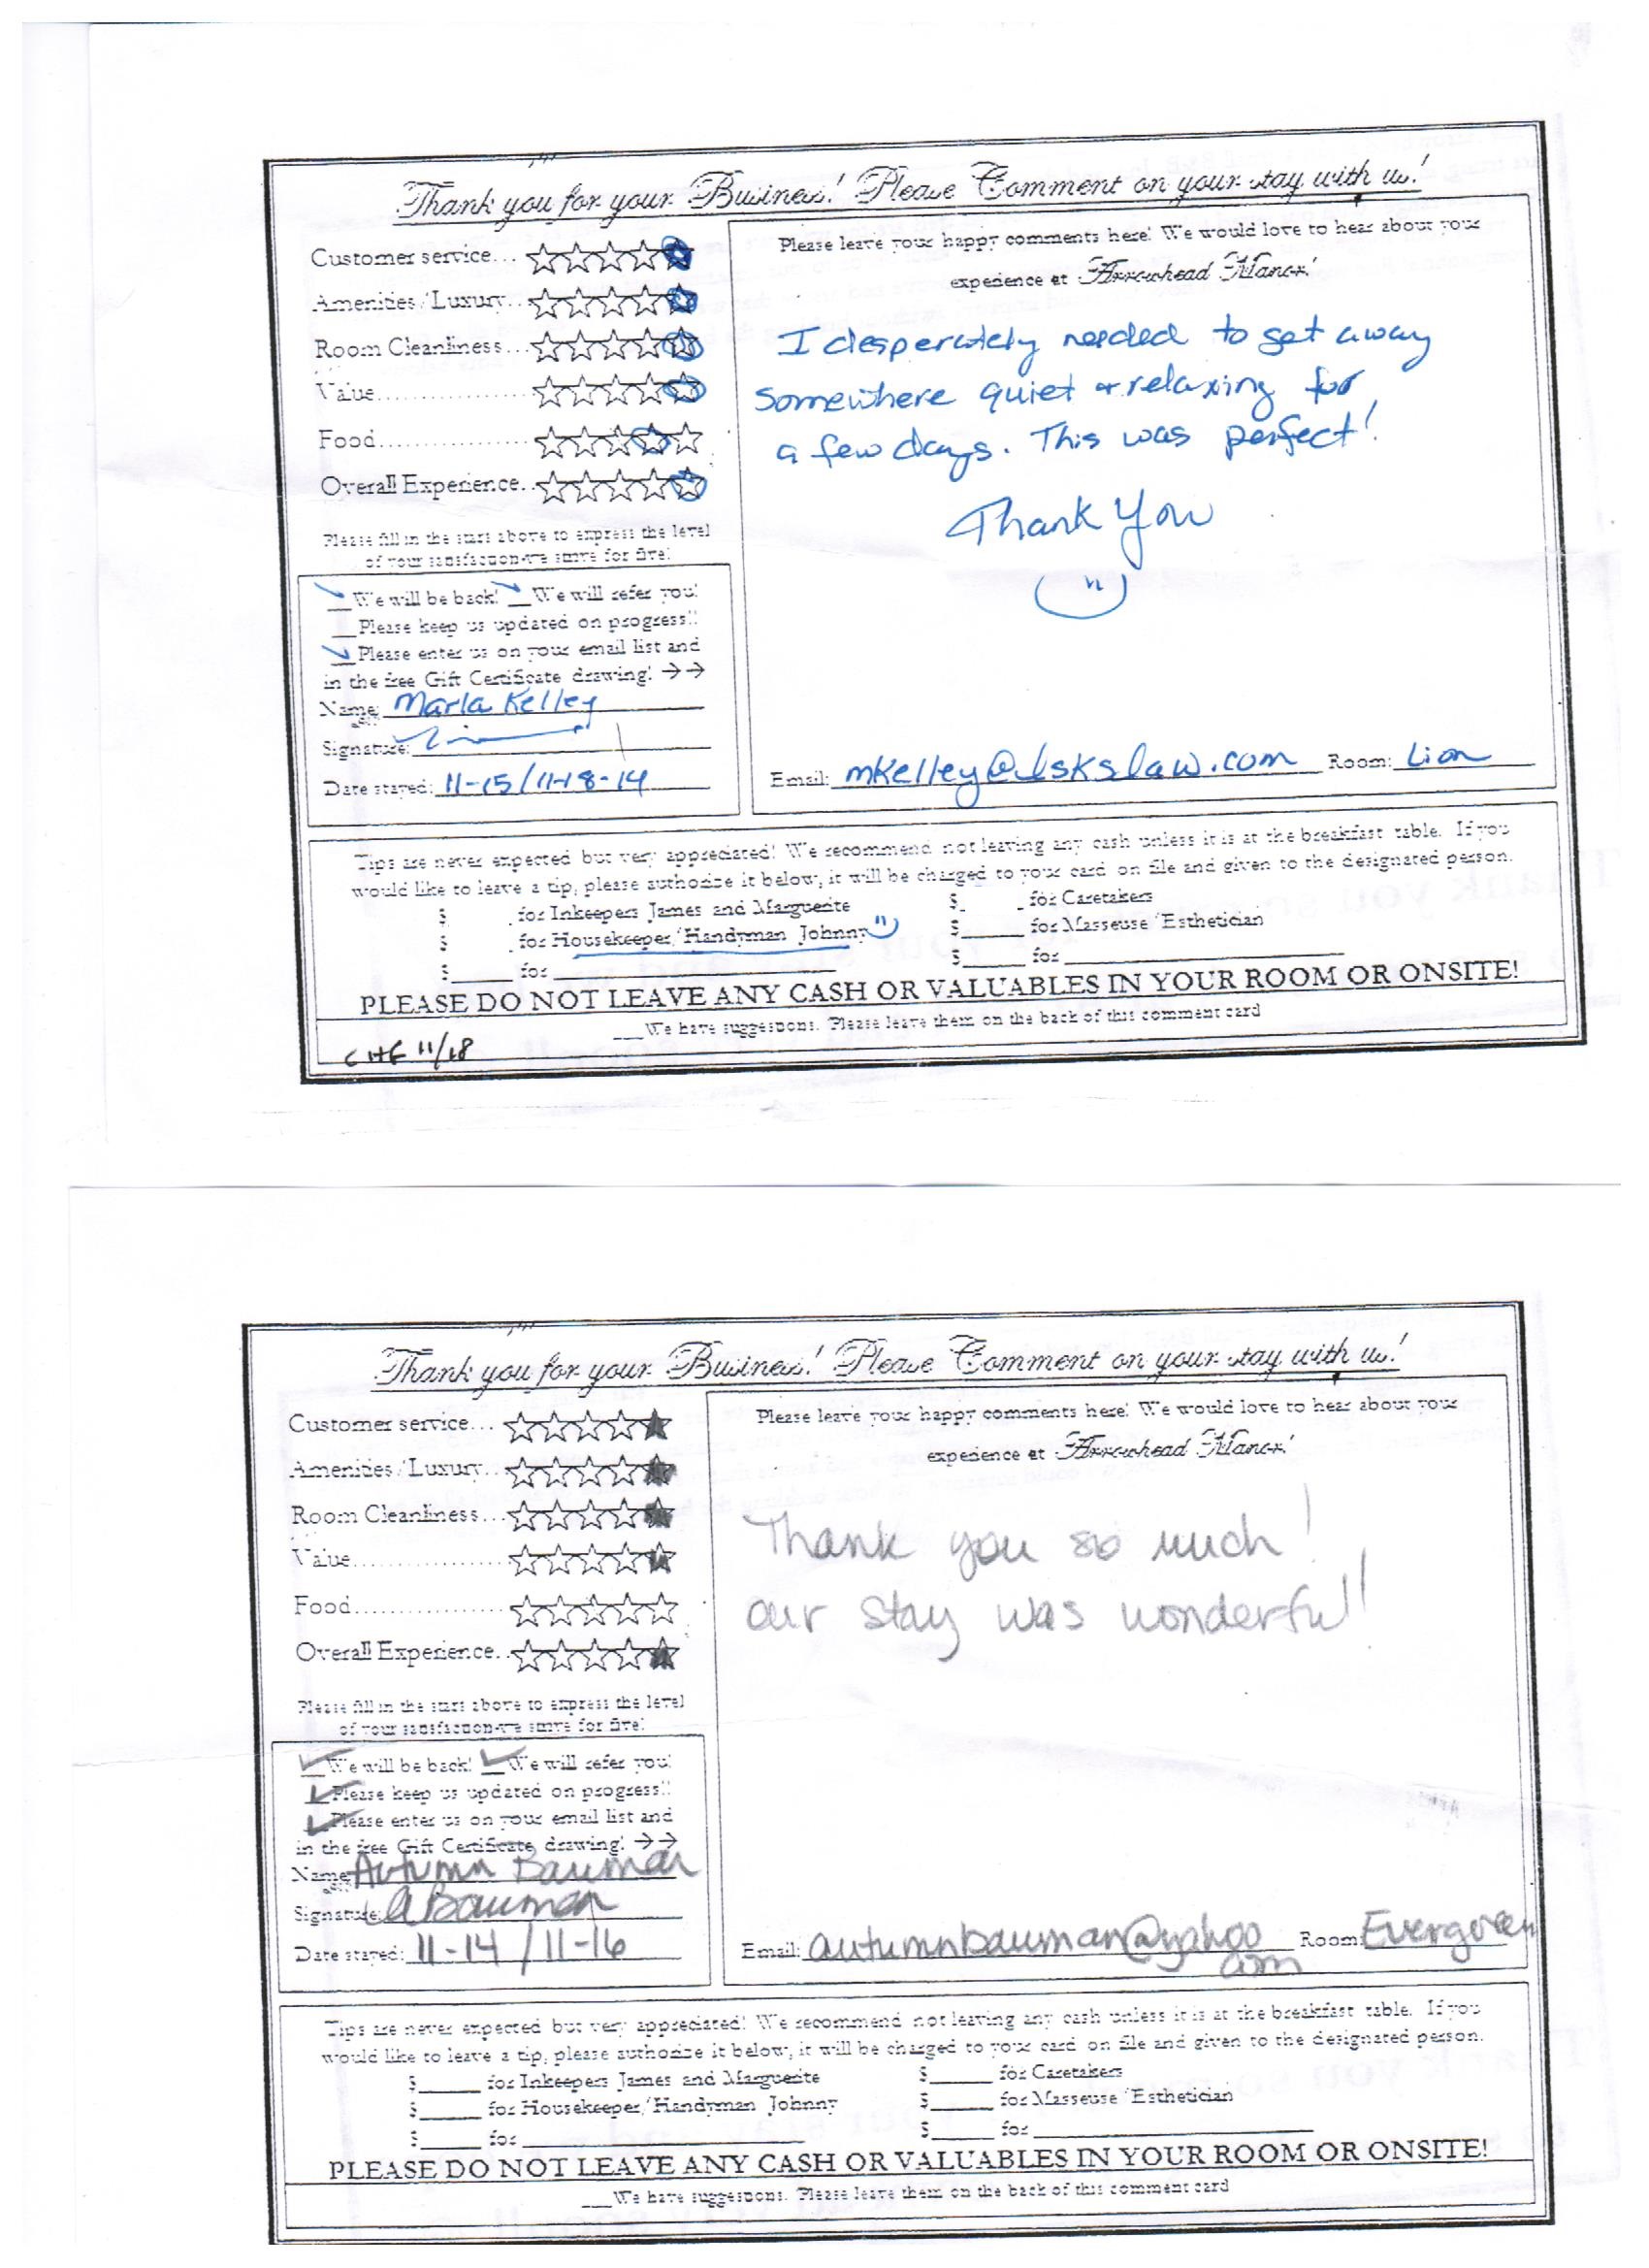 Thank you for your Business! Please Comment on your stay with us!
Customer service...
Amenities/Luxury..
Room Cleanliness...
Value..................
Food..................
Overall Experience..
Please fill in the stars above to express the level
of your satisfaction-we strive for five!
__We will be back! __We will refer you!
__Please keep us updated on progress!!
__Please enter us on your email list and
in the free Gift Certificate drawing! →→
Name: Marla Kelley
Signature:
Date stayed: 11-15/11-18-14
Please leave your happy comments here! We would love to hear about your
experience at Arrowhead Manor!
I desperately needed to get away
somewhere quiet & relaxing for
a few days. This was perfect!
Thank You
Email: mkelley@lskslaw.com Room: Lion
Tips are never expected but very appreciated! We recommend not leaving any cash unless it is at the breakfast table. If you
would like to leave a tip, please authorize it below, it will be charged to your card on file and given to the designated person.
$ for Inkeepers James and Marguerite $ for Caretakers
$ for Housekeeper/Handyman Johnny $_____ for Masseuse/Esthetician
$_____ for $_____ for
PLEASE DO NOT LEAVE ANY CASH OR VALUABLES IN YOUR ROOM OR ONSITE!
__We have suggestions. Please leave them on the back of this comment card
11/18
Thank you for your Business! Please Comment on your stay with us!
Customer service...
Amenities/Luxury..
Room Cleanliness...
Value..................
Food..................
Overall Experience..
Please fill in the stars above to express the level
of your satisfaction-we strive for five!
__We will be back! __We will refer you!
__Please keep us updated on progress!!
__Please enter us on your email list and
in the free Gift Certificate drawing! →→
Name: Autumn Bauman
Signature: A Bauman
Date stayed: 11-14/11-16
Please leave your happy comments here! We would love to hear about your
experience at Arrowhead Manor!
Thank you so much!
our stay was wonderful!
Email: autumnbauman@yahoo Room: Evergreen
com
Tips are never expected but very appreciated! We recommend not leaving any cash unless it is at the breakfast table. If you
would like to leave a tip, please authorize it below, it will be charged to your card on file and given to the designated person.
$_____ for Inkeepers James and Marguerite $_____ for Caretakers
$_____ for Housekeeper/Handyman Johnny $_____ for Masseuse/Esthetician
$_____ for $_____ for
PLEASE DO NOT LEAVE ANY CASH OR VALUABLES IN YOUR ROOM OR ONSITE!
__We have suggestions. Please leave them on the back of this comment card